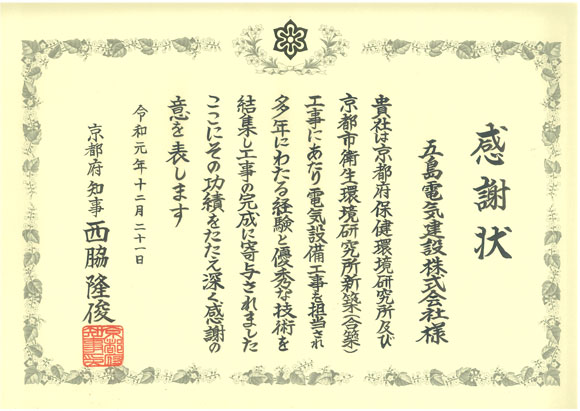 感謝状
五島電気建設株式会社様
貴社は京都府保健環境研究所及び
京都市衛生環境研究所新築(合築)
工事にあたり電気設備工事を担当され
多年にわたる経験と優秀な技術を
結集し工事の完成に寄与されました
ここにその功績をたたえ深く感謝の
意を表します
令和元年十二月二十一日
京都府知事 西脇隆俊